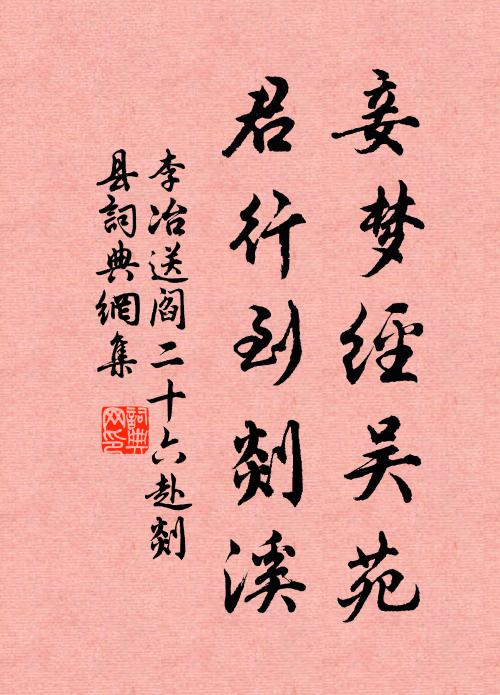 妾梦經吴苑
君行到剡溪
李冶送阎二十六赴剡
县詞典網集
詞典
网印